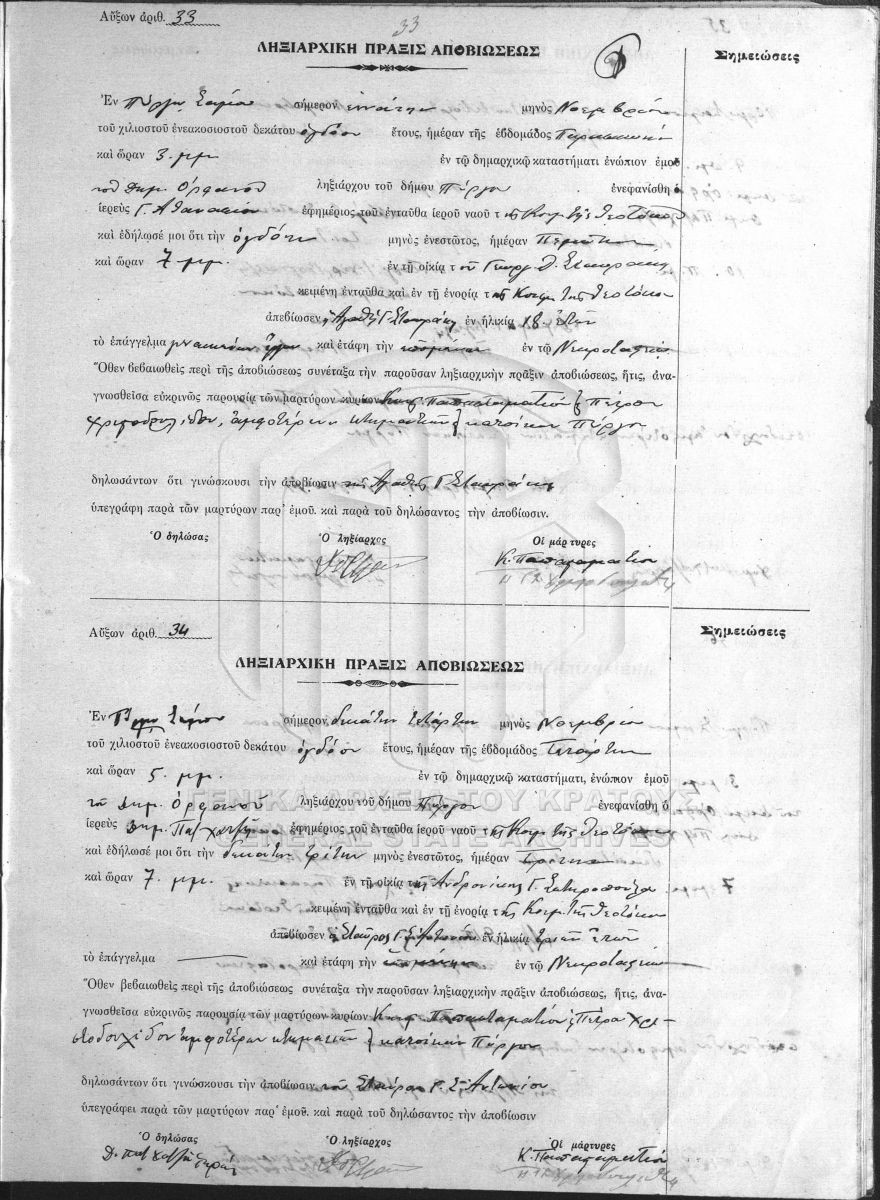 Αὔξων ἀριθ. 33
33
ΛΗΞΙΑΡΧΙΚΗ ΠΡΑΞΙΣ ΑΠΟΒΙΩΣΕΩΣ
Σημειώσεις
Ἐν Πύργῳ Σάμου σήμερον ἐννάτην μηνὸς Νοεμβρίου
τοῦ χιλιοστοῦ ἐνεακοσιοστοῦ δεκάτου ὀγδόου ἔτους, ἡμέραν τῆς ἑβδομάδος Παρασκευὴν
καὶ ὥραν 3. μμ ἐν τῷ δημαρχικῷ καταστήματι ἐνώπιον ἐμοῦ
τοῦ Δημ. Ὀρφανοῦ ληξιάρχου τοῦ δήμου Πύργου ἐνεφανίσθη ὁ
ἱερεὺς Γ. Ἀθανασίου ἐφημέριος τοῦ ἐνταῦθα ἱεροῦ ναοῦ τῆς Κοιμ. τῆς Θεοτόκου
καὶ ἐδήλωσέ μοι ὅτι τὴν ὀγδόην μηνὸς ἐνεστῶτος, ἡμέραν Πέμπτην
καὶ ὥραν 7 μμ. ἐν τῇ οἰκίᾳ τοῦ Γεωργ.
κειμένη ἐνταῦθα καὶ ἐν τῇ ἐνορίᾳ τῆς Κοιμ. τῆς Θεοτόκου
ἀπεβίωσεν ἡ Ἀγαθὴ Γ. ἐν ἡλικίᾳ 18 ἐτῶν
τὸ ἐπάγγελμα καὶ ἐτάφη τὴν ἐν τῷ Νεκροταφείῳ
Ὅθεν βεβαιωθεὶς περὶ τῆς ἀποβιώσεως συνέταξα τὴν παροῦσαν ληξιαρχικὴν πρᾶξιν ἀποβιώσεως, ἥτις, ἀνα-
γνωσθεῖσα εὐκρινῶς παρουσίᾳ τῶν μαρτύρων κυρίων Κωνσ. Παπασταματίου & Πέτρου
ἀμφοτέρων κτηματιῶν & κατοίκων Πύργου
δηλωσάντων ὅτι γινώσκουσι τὴν ἀποβίωσιν τῆς Ἀγαθῆς Γ.
ὑπεγράφη παρὰ τῶν μαρτύρων παρ' ἐμοῦ. καὶ παρὰ τοῦ δηλώσαντος τὴν ἀποβίωσιν.
Ὁ δηλώσας Ὁ ληξίαρχος Οἱ μάρτυρες
Κ. Παπασταματίου
Αὔξων ἀριθ. 34
Σημειώσεις
ΛΗΞΙΑΡΧΙΚΗ ΠΡΑΞΙΣ ΑΠΟΒΙΩΣΕΩΣ
Ἐν Πύργῳ Σάμου σήμερον, δεκάτην τετάρτην μηνὸς Νοεμβρίου
τοῦ χιλιοστοῦ ἐνεακοσιοστοῦ δεκάτου ὀγδόου ἔτους, ἡμέραν τῆς ἑβδομάδος Τετάρτην
καὶ ὥραν 5. μμ. ἐν τῷ δημαρχικῷ καταστήματι, ἐνώπιον ἐμοῦ
τοῦ Δημ. Ὀρφανοῦ ληξιάρχου τοῦ δήμου Πύργου ἐνεφανίσθη ὁ
ΓΕΝΙΚΑ ΑΡΧΕΙΑ ΤΟΥ ΚΡΑΤΟΥΣ
ἱερεὺς Δημ. ἐφημέριος τοῦ ἐνταῦθα ἱεροῦ ναοῦ τῆς Κοιμ. τῆς Θεοτόκου
GENERAL STATE ARCHIVES
καὶ ἐδήλωσέ μοι ὅτι τὴν δεκάτην τρίτην μηνὸς ἐνεστῶτος, ἡμέραν Τρίτην
καὶ ὥραν 7. μμ. ἐν τῇ οἰκίᾳ τῆς Ἀνδρονίκης Γ.
κειμένη ἐνταῦθα καὶ ἐν τῇ ἐνορίᾳ τῆς Κοιμ. τῆς Θεοτόκου
ἀπεβίωσεν ὁ Σταῦρος Γ. ἐν ἡλικίᾳ τριῶν ἐτῶν
τὸ ἐπάγγελμα καὶ ἐτάφη τὴν ἐν τῷ Νεκροταφείῳ
Ὅθεν βεβαιωθεὶς περὶ τῆς ἀποβιώσεως συνέταξα τὴν παροῦσαν ληξιαρχικὴν πρᾶξιν ἀποβιώσεως, ἥτις, ἀνα-
γνωσθεῖσα εὐκρινῶς παρουσίᾳ τῶν μαρτύρων κυρίων Κωνσ. Παπασταματίου & Πέτρου
ἀμφοτέρων κτηματιῶν & κατοίκων Πύργου
δηλωσάντων ὅτι γινώσκουσι τὴν ἀποβίωσιν τοῦ Σταύρου Γ.
ὑπεγράφει παρὰ τῶν μαρτύρων παρ' ἐμοῦ. καὶ παρὰ τοῦ δηλώσαντος τὴν ἀποβίωσιν
Ὁ δηλώσας Ὁ ληξίαρχος Οἱ μάρτυρες
Κ. Παπασταματίου